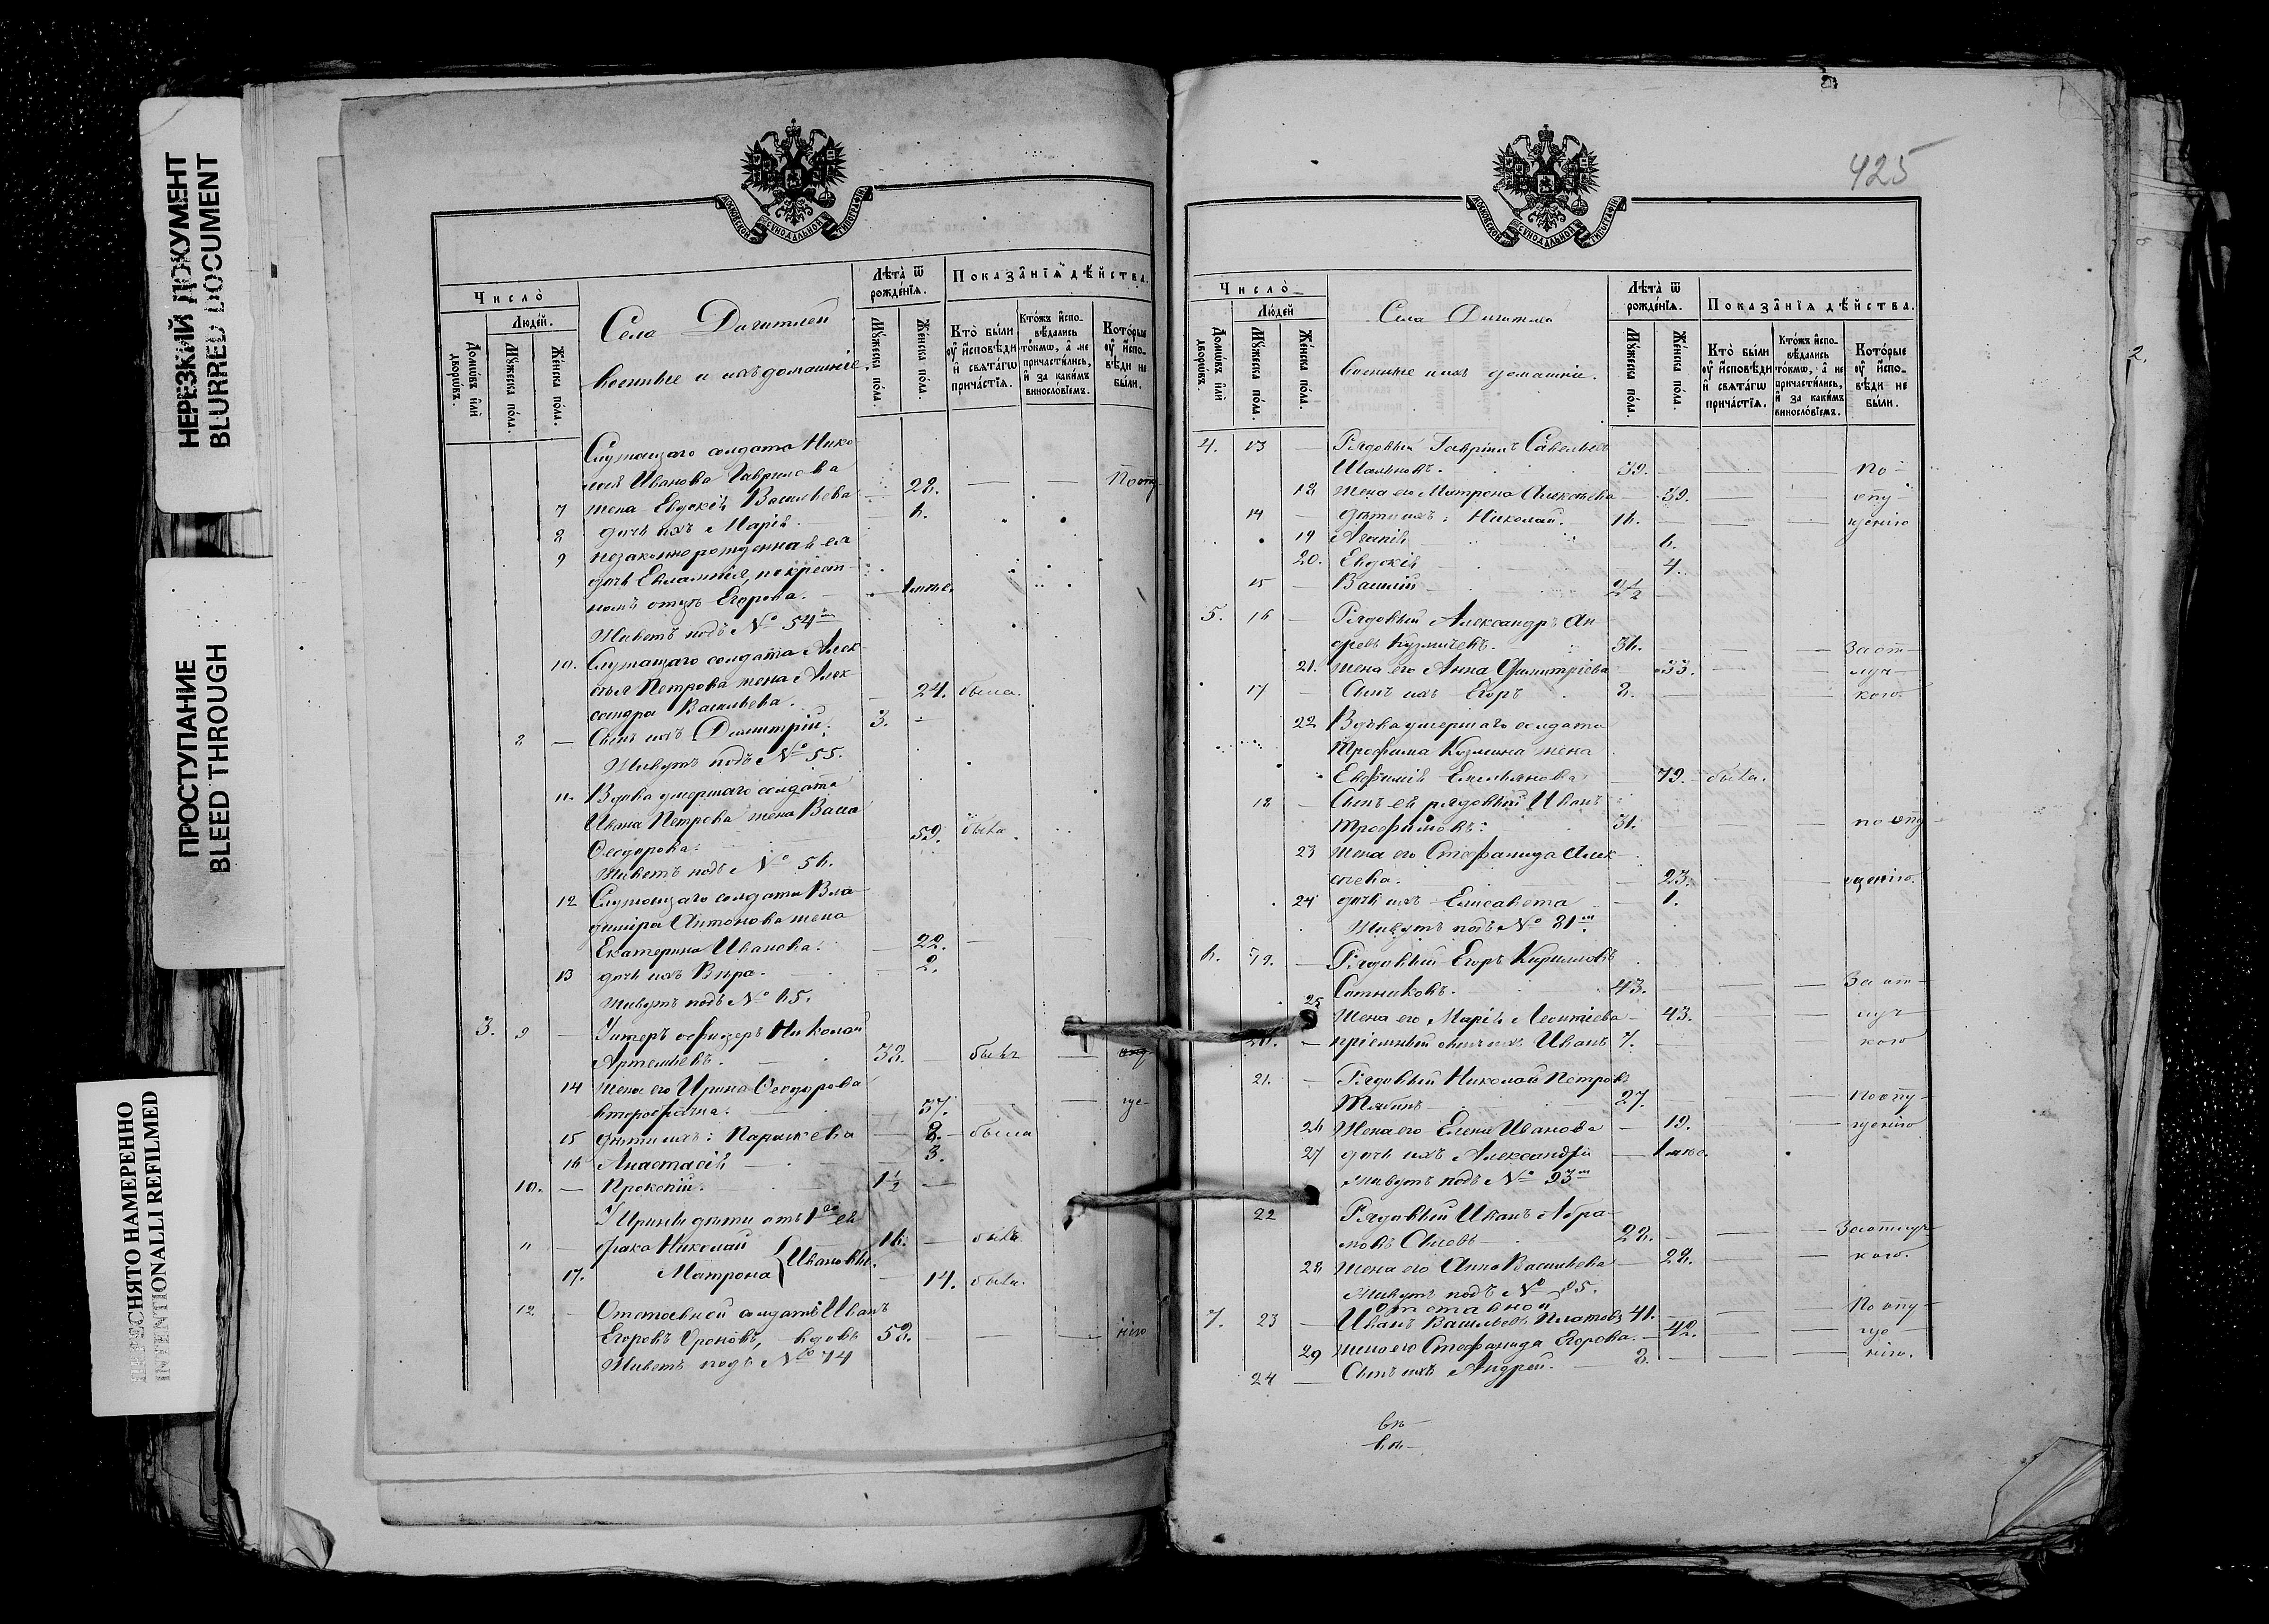 НЕРЕЗКИЙ ДОКУМЕНТ
BLURRED DOCUMENT
ПРОСТУПАНИЕ
BLEED THROUGH
ПЕРЕСНЯТО НАМЕРЕННО
INTENTIONALLI REFILMED
МОСКОВСКОЙ СѴНОДАЛЬНОЙ ТИПОГРАФІИ
Число̀
Людей.
Домѡвъ илѝ дворѡвъ.
Мꙋжеска пола.
Женска пола.
Села
военные и ихъ домашніе.
Лѣта̀ ѿ рожденїѧ.
Мꙋжеска пола.
Женска пола.
Показанїѧ дѣйства.
Кто̀ были ᲂу҆ исповѣди и свѧтагѡ причастїѧ.
Ктожъ исповѣдались токмѡ, а не причастились, и за какимъ винословїемъ.
Которые ᲂу҆ исповѣди не были.
Служащаго солдата Нико
лая Иванова Гаврилова
7 жена Евдокія Васильева 28. — — По опу
8 дочь ихъ Марія. 6.
9 незаконнорожденная ея
дочь Евлампія, по крест-
номъ отцѣ Егорова. —
Живетъ подъ № 54м
10. Служащаго солдата Алек
сѣя Петрова жена Алек
сандра Васильева. — 24. была.
8 — Сынъ ихъ Димитрій. 3. —
Живутъ подъ № 55.
11. Вдова умершаго солдата
Ивана Петрова жена Васса
Ѳеодорова. 59. была.
Живетъ подъ № 56.
12 Служащаго солдата Вла
диміра Антонова жена
Екатерина Иванова. — 22. —
13 дочь ихъ Вѣра. — 2.
Живутъ подъ № 65.
3. 9 — Унтеръ офицеръ Николай
Артемьевъ. 38. былъ —
14 Жена его Ирина Ѳеодорова
второбрачна. 37. — — ще-
15 дѣти ихъ: Параскева — 8. — была
16 Анастасія — 3.
10. — Прокопій. 1½ —
У Ирины дѣти отъ 1го ея
11 — брака Николай 16. — былъ
Ивановы.
17. Матрона — 14. была.
12 — Отставной солдатъ Иванъ
Егоровъ, вдовъ 58. — — — нію
Живетъ подъ № 74
425
МОСКОВСКОЙ СѴНОДАЛЬНОЙ ТИПОГРАФІИ
Число̀
Людей
Домѡвъ илѝ дворѡвъ.
Мꙋжеска пола.
Женска пола.
Села
военные и ихъ домашніе.
Лѣта̀ ѿ рожденїѧ.
Мꙋжеска пола.
Женска пола.
Показанїѧ дѣйства.
Кто̀ были ᲂу҆ исповѣди и свѧтагѡ причастїѧ.
Ктожъ исповѣдались токмѡ, а не причастились, и за какимъ винословїемъ.
Которые ᲂу҆ исповѣди не были.
4. 13 — Рядовый Гавріилъ Савельевъ
39. — — — по-
18 жена его Матрона Алексѣева — 39. — — опу
14 — дѣти ихъ: Николай. 16. — — — щенію
19 Агапія 6.
20. Евдокія 4.
15 — Василій 2½ —
5. 16 — Рядовый Александръ Ан
дреевъ Кузмичевъ. 36. — За от-
21. жена его Анна Димитріева 33. — — луч-
17 — Сынъ ихъ Егоръ 8. — — — кою.
22 Вдова умершаго солдата
Трофима Кузмина жена
Евфимія Емельянова — 79. была.
18 — Сынъ ея рядовый Иванъ
Трофимовъ. 31. — — — по опу
23 жена его Стефанида Алек-
сѣева. — 23. — — щенію.
24 дочь ихъ Елисавета — 1.
Живутъ подъ № 81м
6. 19. — Рядовый Егоръ Кириловъ
Сотниковъ. 43. — — — За от-
25 Жена его Марія Леонтіева — 43. — — луч-
20. — пріемный сынъ ихъ Иванъ 7. — — кою
21. — Рядовый Николай Петровъ
27. — — — По опу-
26 Жена его Елена Иванова — 19. — — щенію
27 дочь ихъ Александра —
живутъ подъ № 93м
22 Рядовый Иванъ Абра-
мовъ 28. — — — За отлуч-
28 жена его Анна Васильева — 28. — — кою.
Живутъ подъ № 95.
отставной
7. 23 — Иванъ Васильевъ Платовъ 41. — — По опу-
29 жена его Стефанида Егорова. — 42. — — ще-
24 — Сынъ ихъ Андрей. — 8. — — нію.